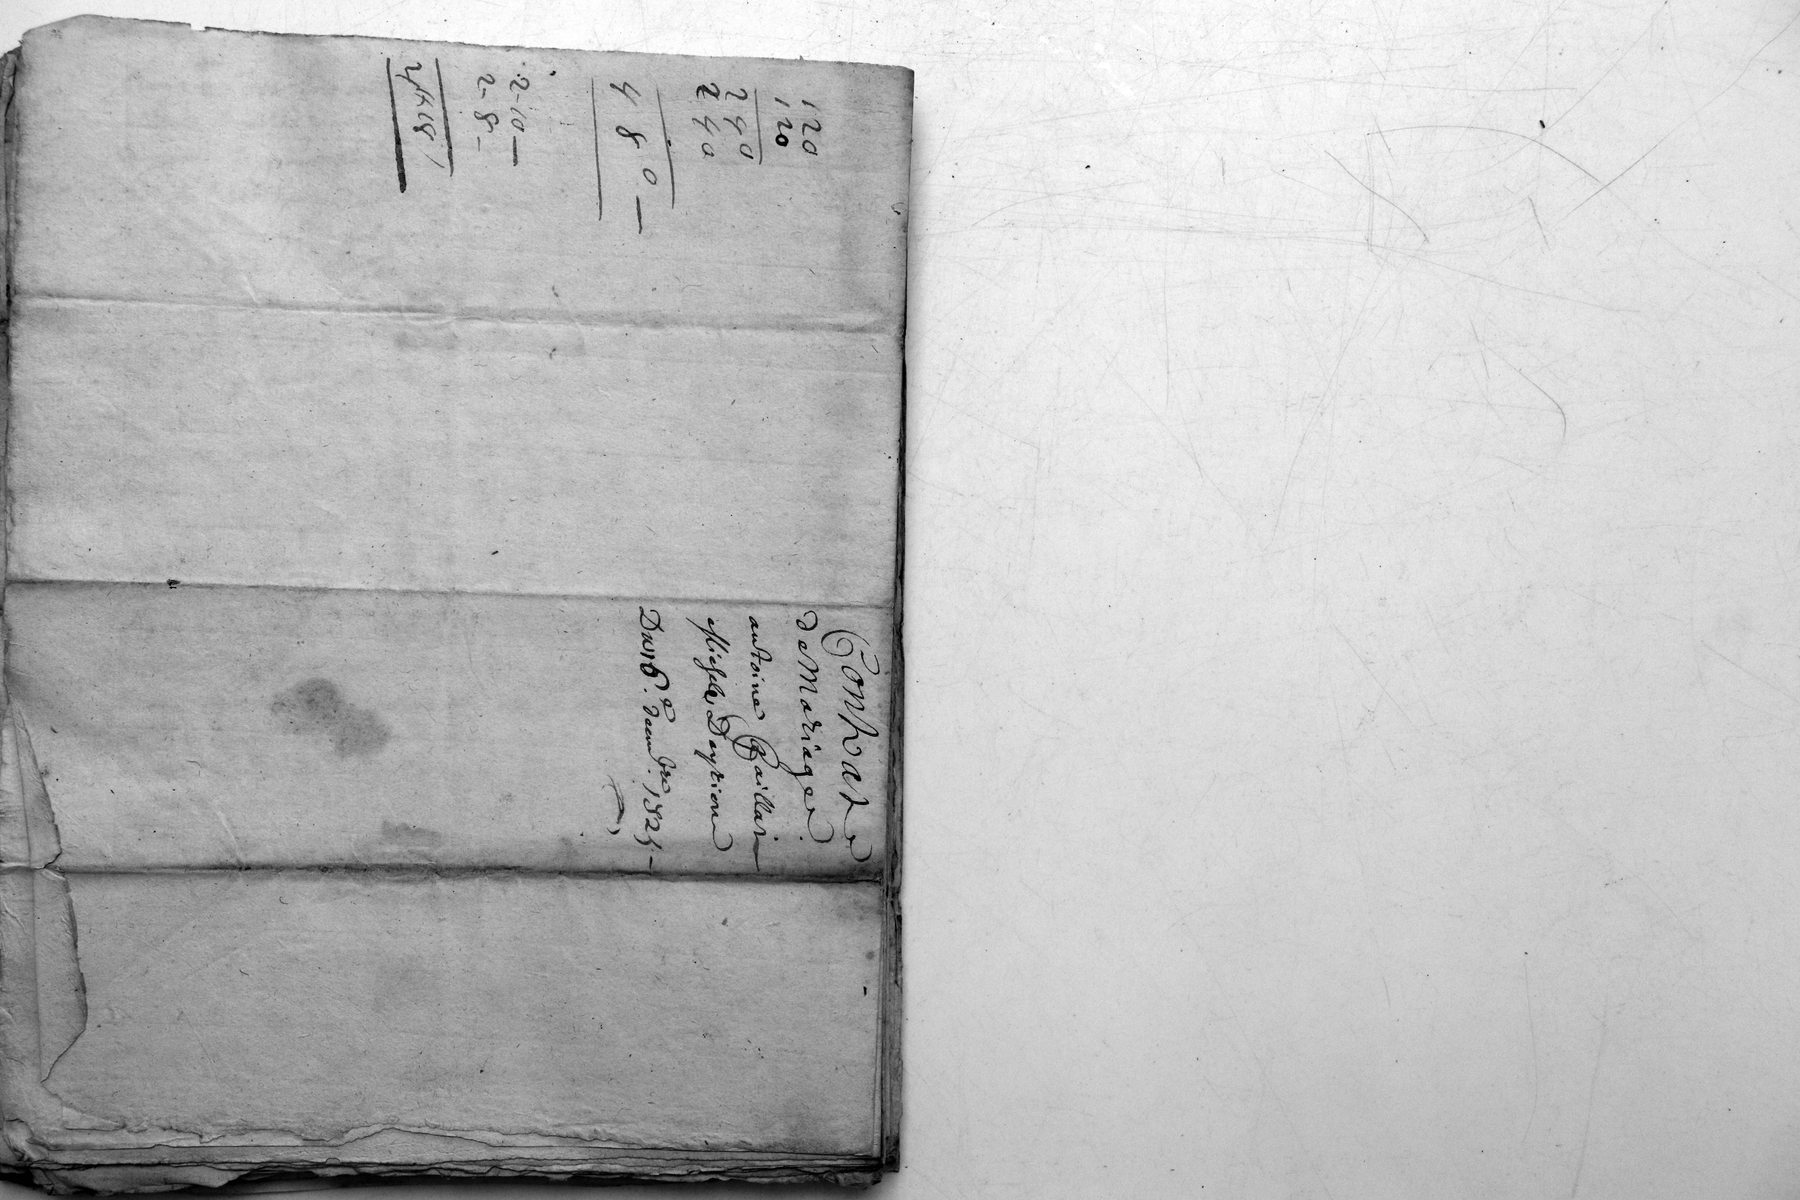 120
120
240
240
480 —
2-10 —
2-8-
4₶ 18
Contrat
de Mariage.
antoine Gaillar
Michele Deyrieu
Du 16.e decembre 1825. —